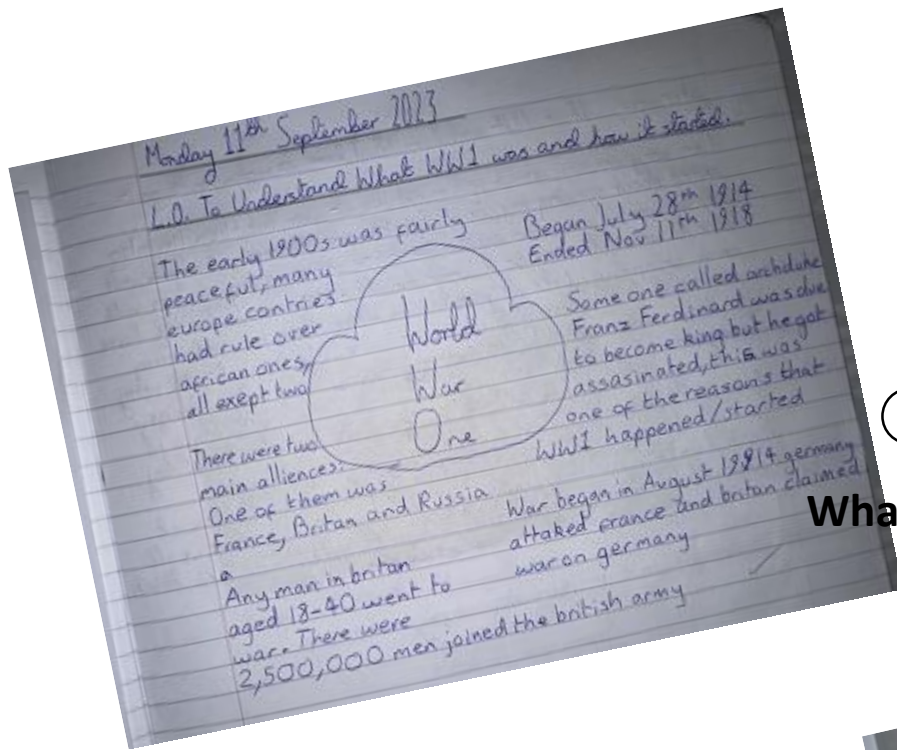 Monday 11th September 2023
L.O. To Understand What WW1 was and how it started.
The early 1900s was fairly
peaceful, many
europe contries
had rule over
african ones,
all exept two
Began July 28th 1914
Ended Nov 11th 1918
World
War
One
Some one called archduke
Franz Ferdinard was due
to become king but he got
assasinated, this was
one of the reasons that
WW1 happened/started
There were two
main alliences.
One of them was
France, Britan and Russia
War began in August 1914 germany
attaked france and britan claimed
war on germany
a
Any man in britan
aged 18-40 went to
war. There were
2,500,000 men joined the british army
Wha